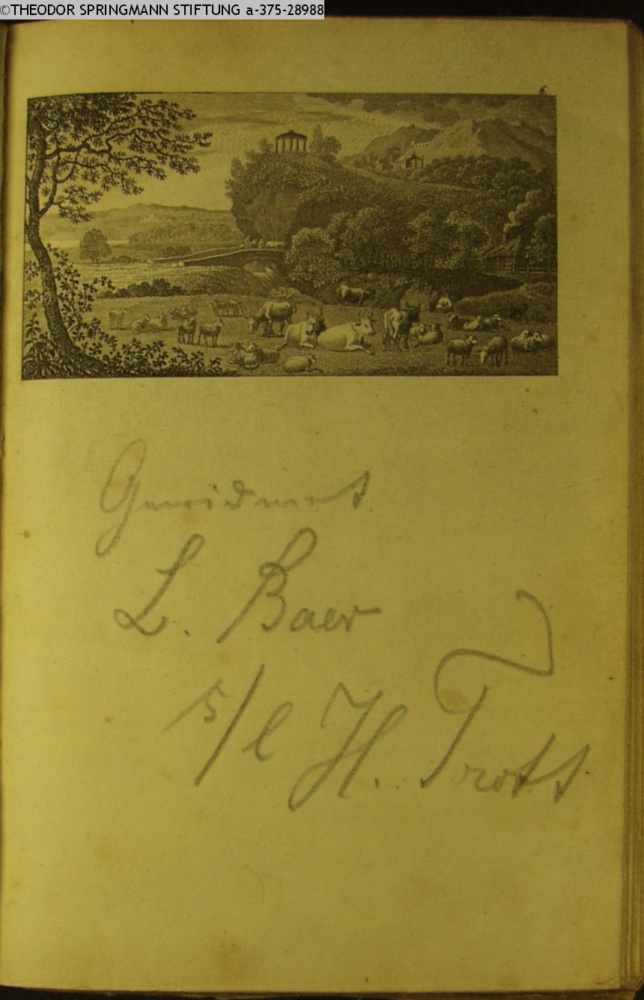 ©THEODOR SPRINGMANN STIFTUNG a-375-28988
6
Gewidmet
L. Baer
s/l H. Trott